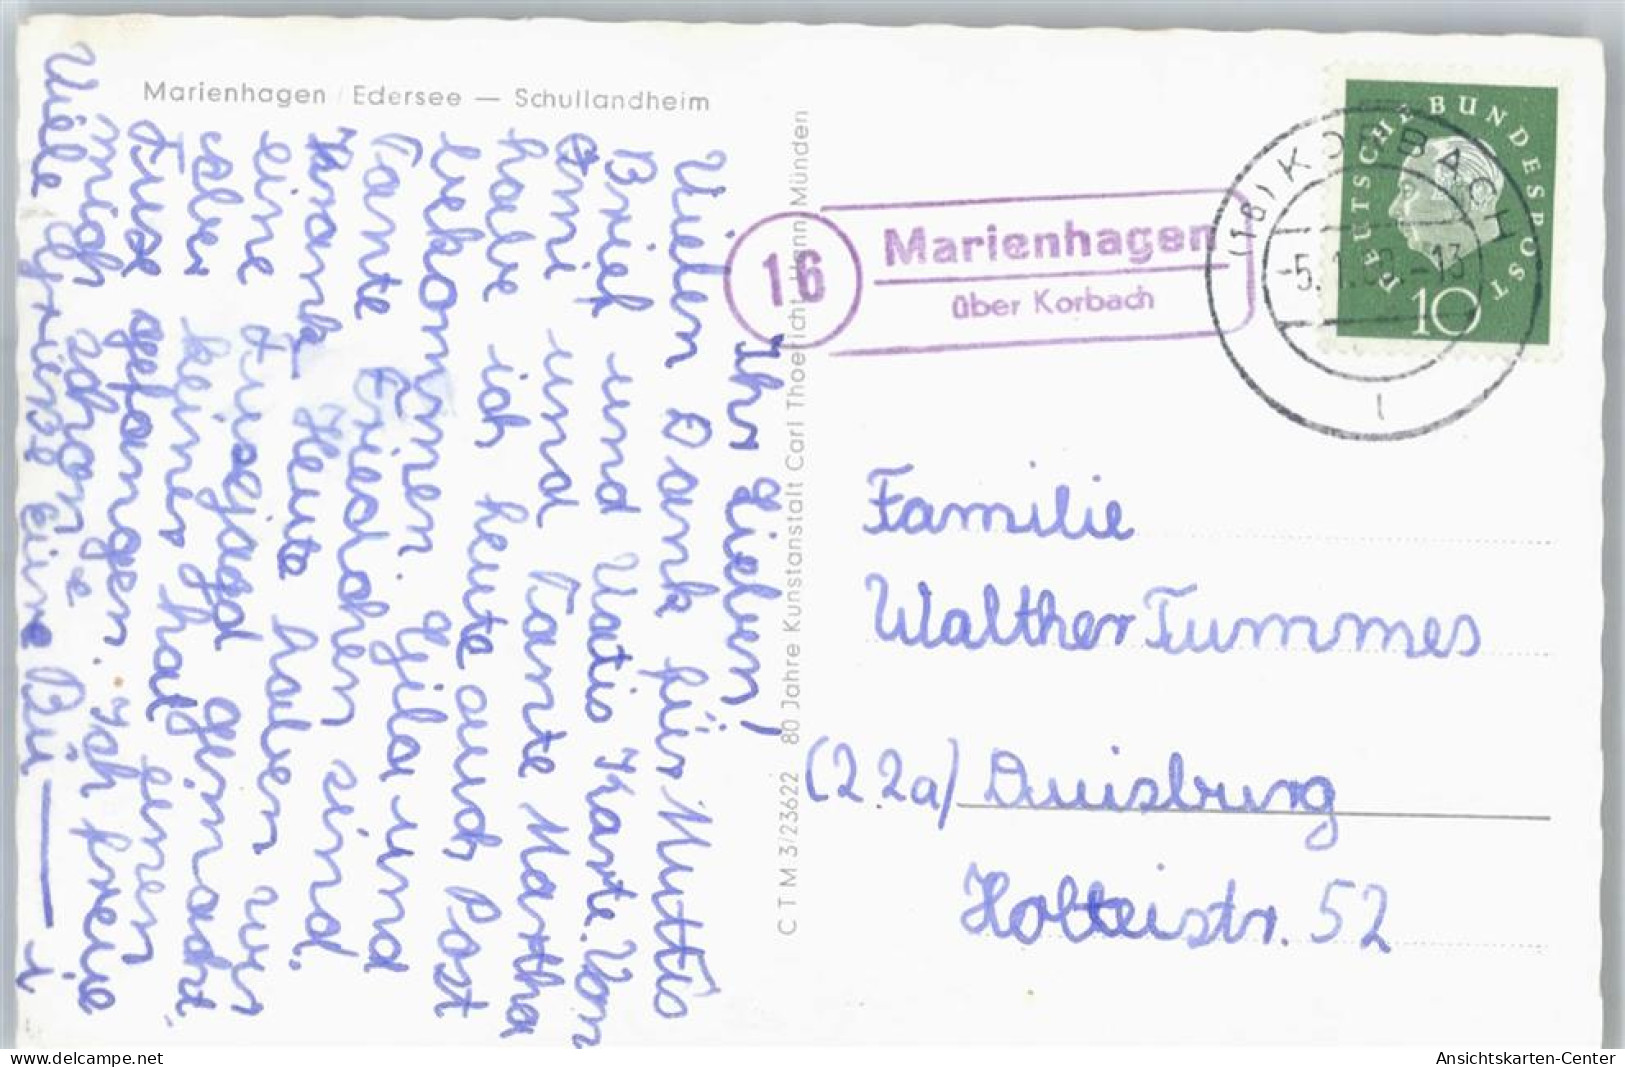 Marienhagen / Edersee — Schullandheim
Ihr Lieben!
Vielen Dank für Muttis
Brief und Vatis Karte. Von
Omi und Tante Martha
habe ich heute auch Post
bekommen. Gila und
Tante Friedchen sind
krank. Heute haben wir
eine Fuchsjagd gemacht.
aber keiner hat einen
Fuchs gefangen. Ich freue
mich schon
Viele Grüße Eure
C T M 3/23622 80 Jahre Kunstanstalt Carl Thoericht Hann. Münden
16
Marienhagen
über Korbach
(16) KORBACH
-5.1.
-13
DEUTSCHE BUNDESPOST
10
Familie
Walther Tummes
(22a) Duisburg
Holteistr. 52
www.delcampe.net
Ansichtskarten-Center